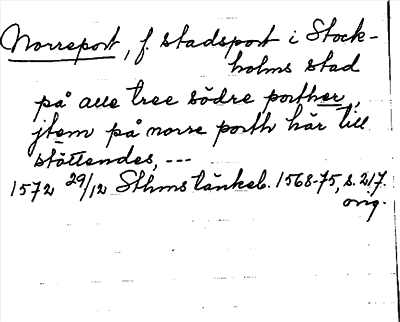 Norreport, f. stadsport i Stock-
holms stad
på alle tree södre porther,
jtem på norre porth här till
stättendes, ---
1572 29/12 Sthms tänkeb. 1568-75, s. 217.
orig.